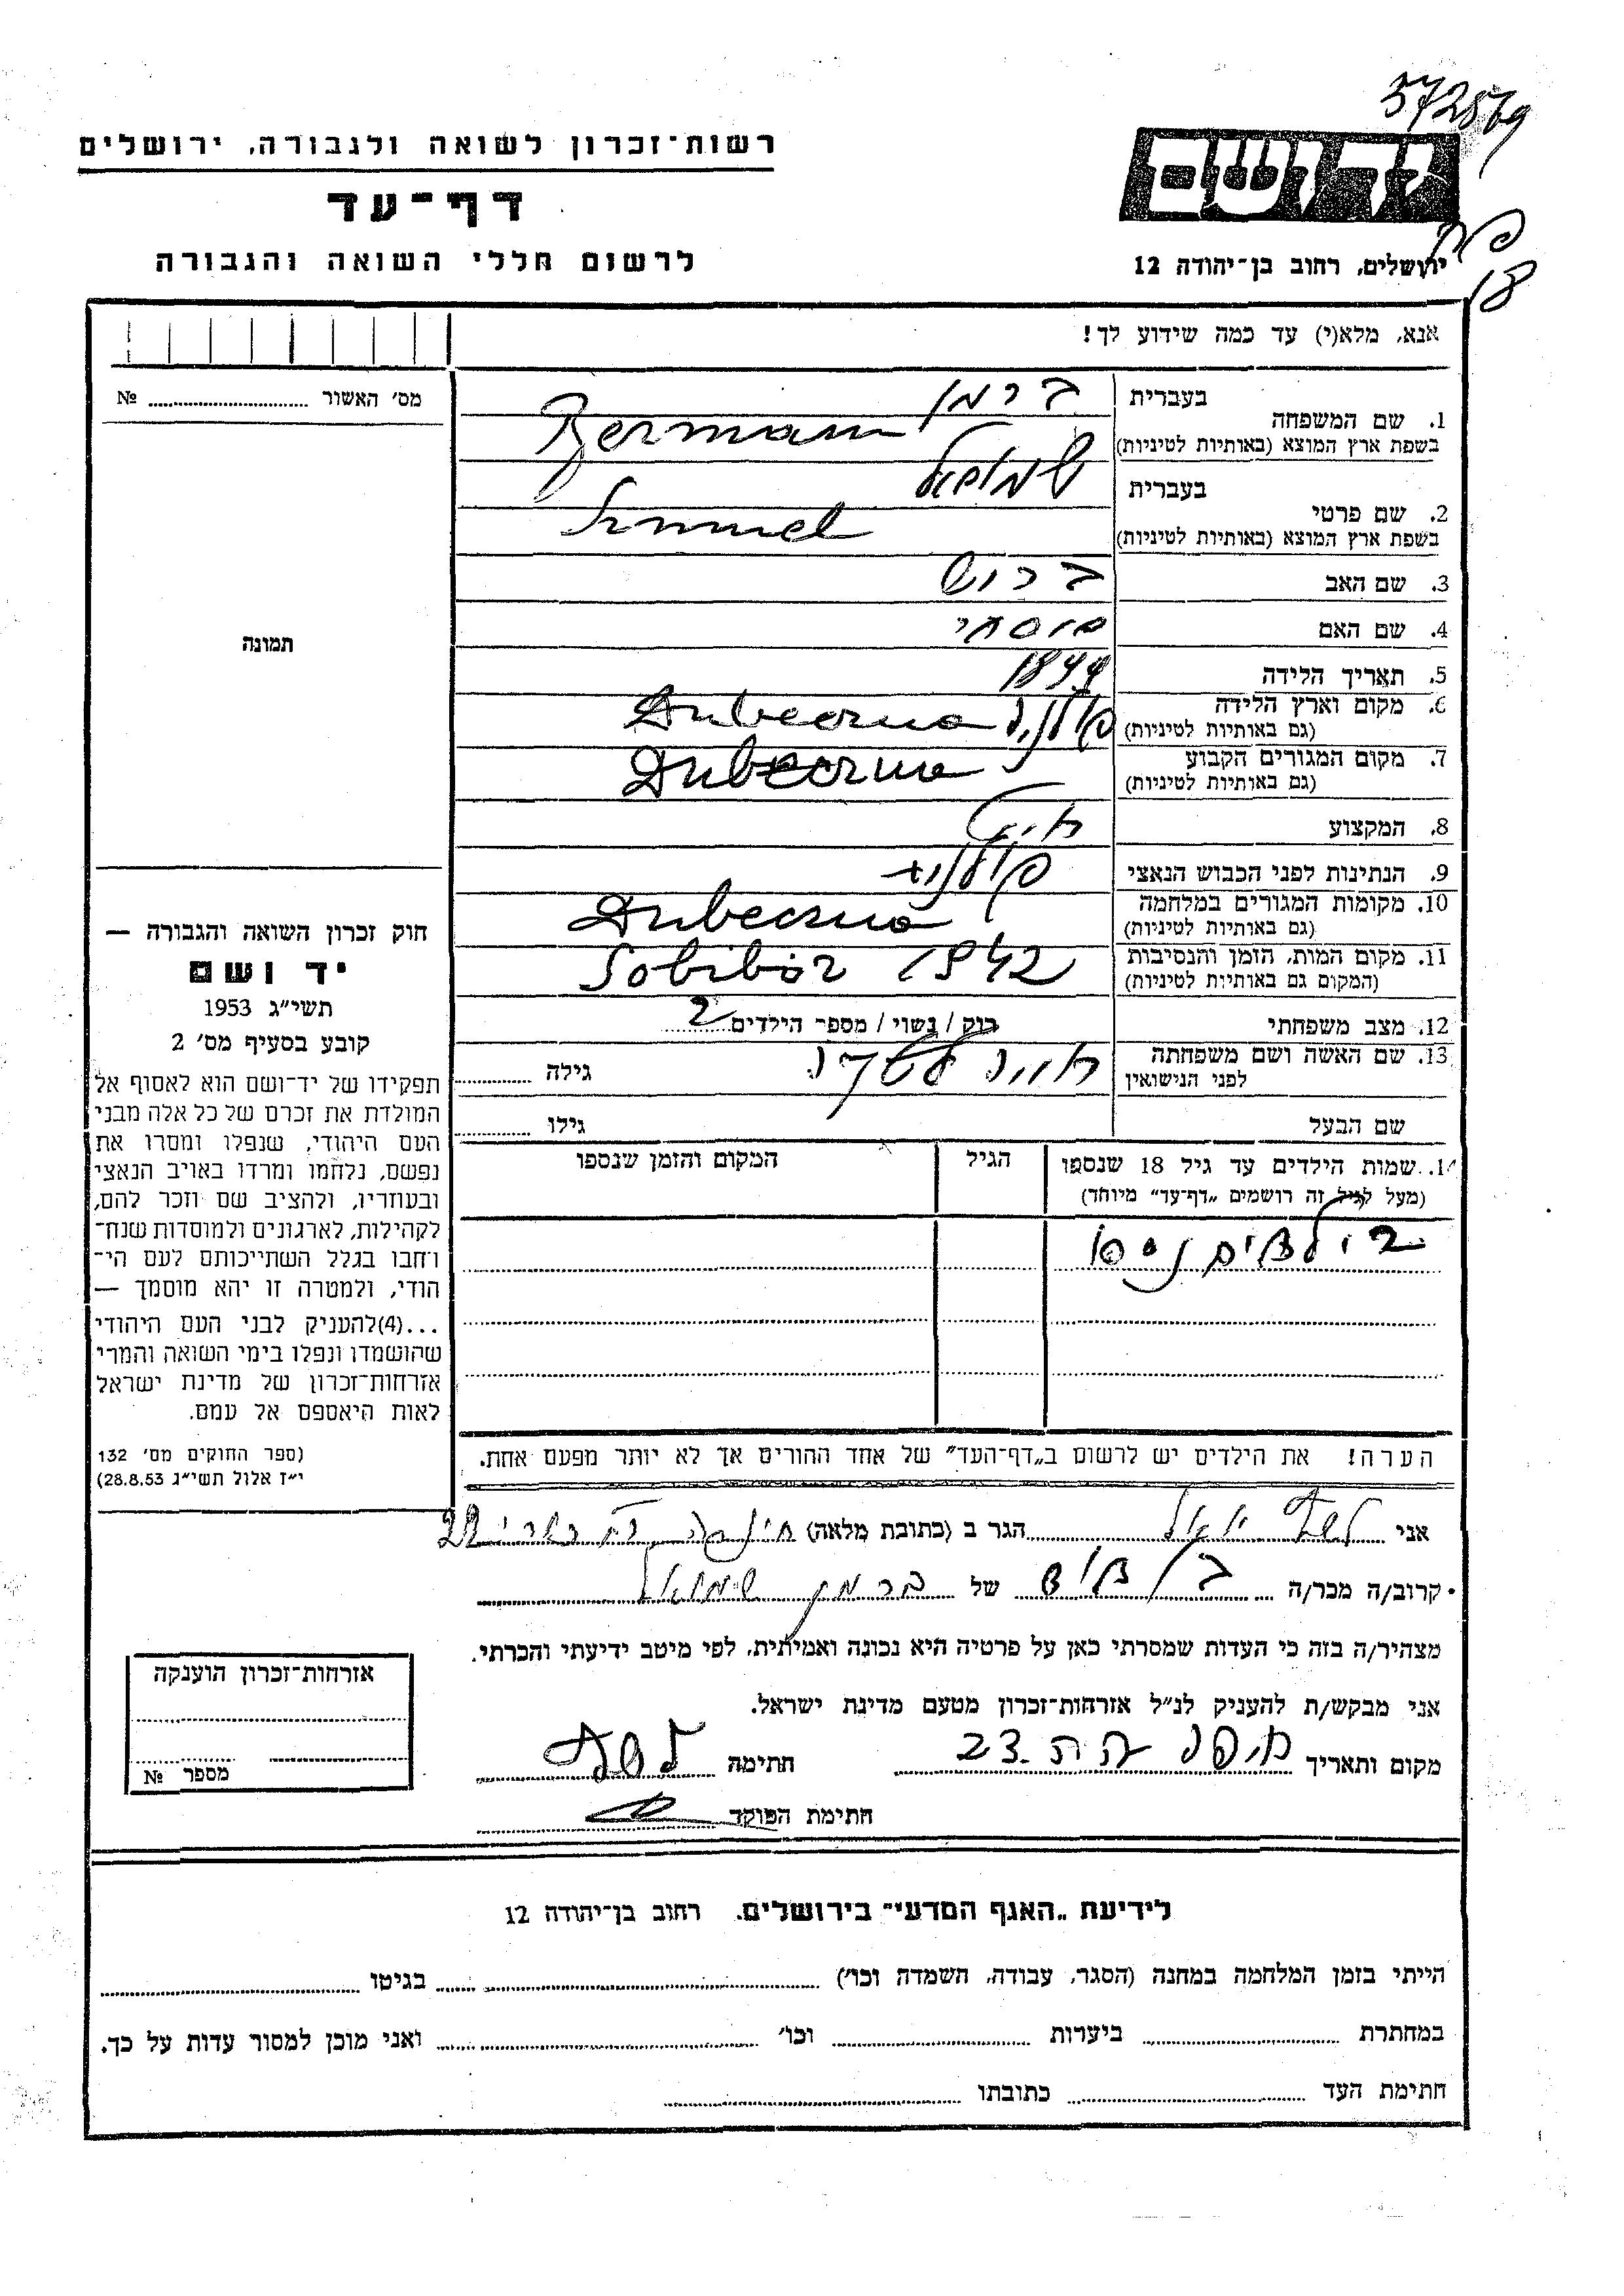 572569
רשות־זכרון לשואה ולגבורה, ירושלים
יד ושם
דף־עד
לרשום חללי השואה והגבורה
ירושלים, רחוב בן־יהודה 12
18
אנא, מלא(י) עד כמה שידוע לך!
מס׳ האשור № 
בעברית ברמן
1. שם המשפחה
בשפת ארץ המוצא (באותיות לטיניות) Berman
בעברית שמואל
2. שם פרטי
בשפת ארץ המוצא (באותיות לטיניות) Smuel
3. שם האב ברוש
4. שם האם
תמונה
5. תאריך הלידה
6. מקום וארץ הלידה פולניה Dubeczno
(גם באותיות לטיניות)
7. מקום המגורים הקבוע Dubeczno
(גם באותיות לטיניות)
8. המקצוע חיט
9. הנתינות לפני הכבוש הנאצי פולנית
10. מקומות המגורים במלחמה Dubeczno
(גם באותיות לטיניות)
11. מקום המות, הזמן והנסיבות Sobibór 1942
(המקום גם באותיות לטיניות)
12. מצב משפחתי רוק / נשוי / מספר הילדים 2
13. שם האשה ושם משפחתה גילה
לפני הנישואין
שם הבעל גילו
14. שמות הילדים עד גיל 18 שנספו הגיל המקום והזמן שנספו
(מעל לגיל זה רושמים „דף־עד״ מיוחד)
2 ילדים ניספו
הערה! את הילדים יש לרשום ב„דף־העד״ של אחד ההורים אך לא יותר מפעם אחת.
חוק זכרון השואה והגבורה —
יד ושם
תשי״ג 1953
קובע בסעיף מס׳ 2
תפקידו של יד־ושם הוא לאסוף אל
המולדת את זכרם של כל אלה מבני
העם היהודי, שנפלו ומסרו את
נפשם, נלחמו ומרדו באויב הנאצי
ובעוזריו, ולהציב שם וזכר להם,
לקהילות, לארגונים ולמוסדות שנח־
רחבו בגלל השתייכותם לעם הי־
הודי, ולמטרה זו יהא מוסמך —
...(4)להעניק לבני העם היהודי
שהושמדו ונפלו בימי השואה והמרי
אזרחות־זכרון של מדינת ישראל
לאות היאספם אל עמם.
(ספר החוקים מס׳ 132
י״ז אלול תשי״ג 28.8.53)
אני יואל הגר ב (כתובת מלאה) 22
קרוב/ה מכר/ה בן דוד של ברמן שמואל
מצהיר/ה בזה כי העדות שמסרתי כאן על פרטיה היא נכונה ואמיתית, לפי מיטב ידיעתי והכרתי.
אני מבקש/ת להעניק לנ״ל אזרחות־זכרון מטעם מדינת ישראל.
מקום ותאריך חיפה חתימה
חתימת הפוקד
אזרחות־זכרון הוענקה
מספר №
לידיעת „האגף המדעי״ בירושלים, רחוב בן־יהודה 12
הייתי בזמן המלחמה במחנה (הסגר, עבודה, השמדה וכו׳) בגיטו
במחתרת ביערות וכו׳ ואני מוכן למסור עדות על כך.
חתימת העד כתובתו